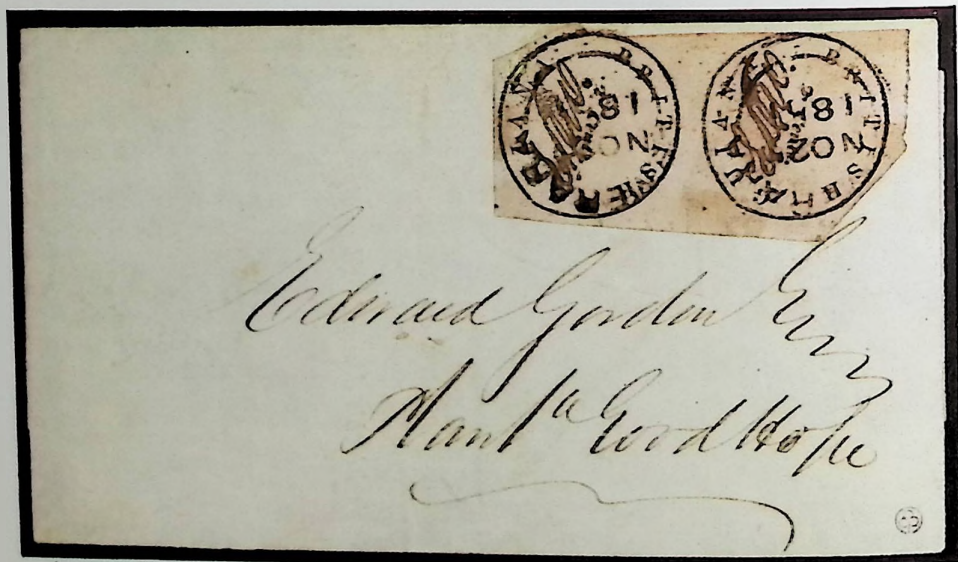 BRITISH
GUIANA
BRITISH
GUIANA
Edward Gordon Esq
Plant<sup>n</sup> Good Hope